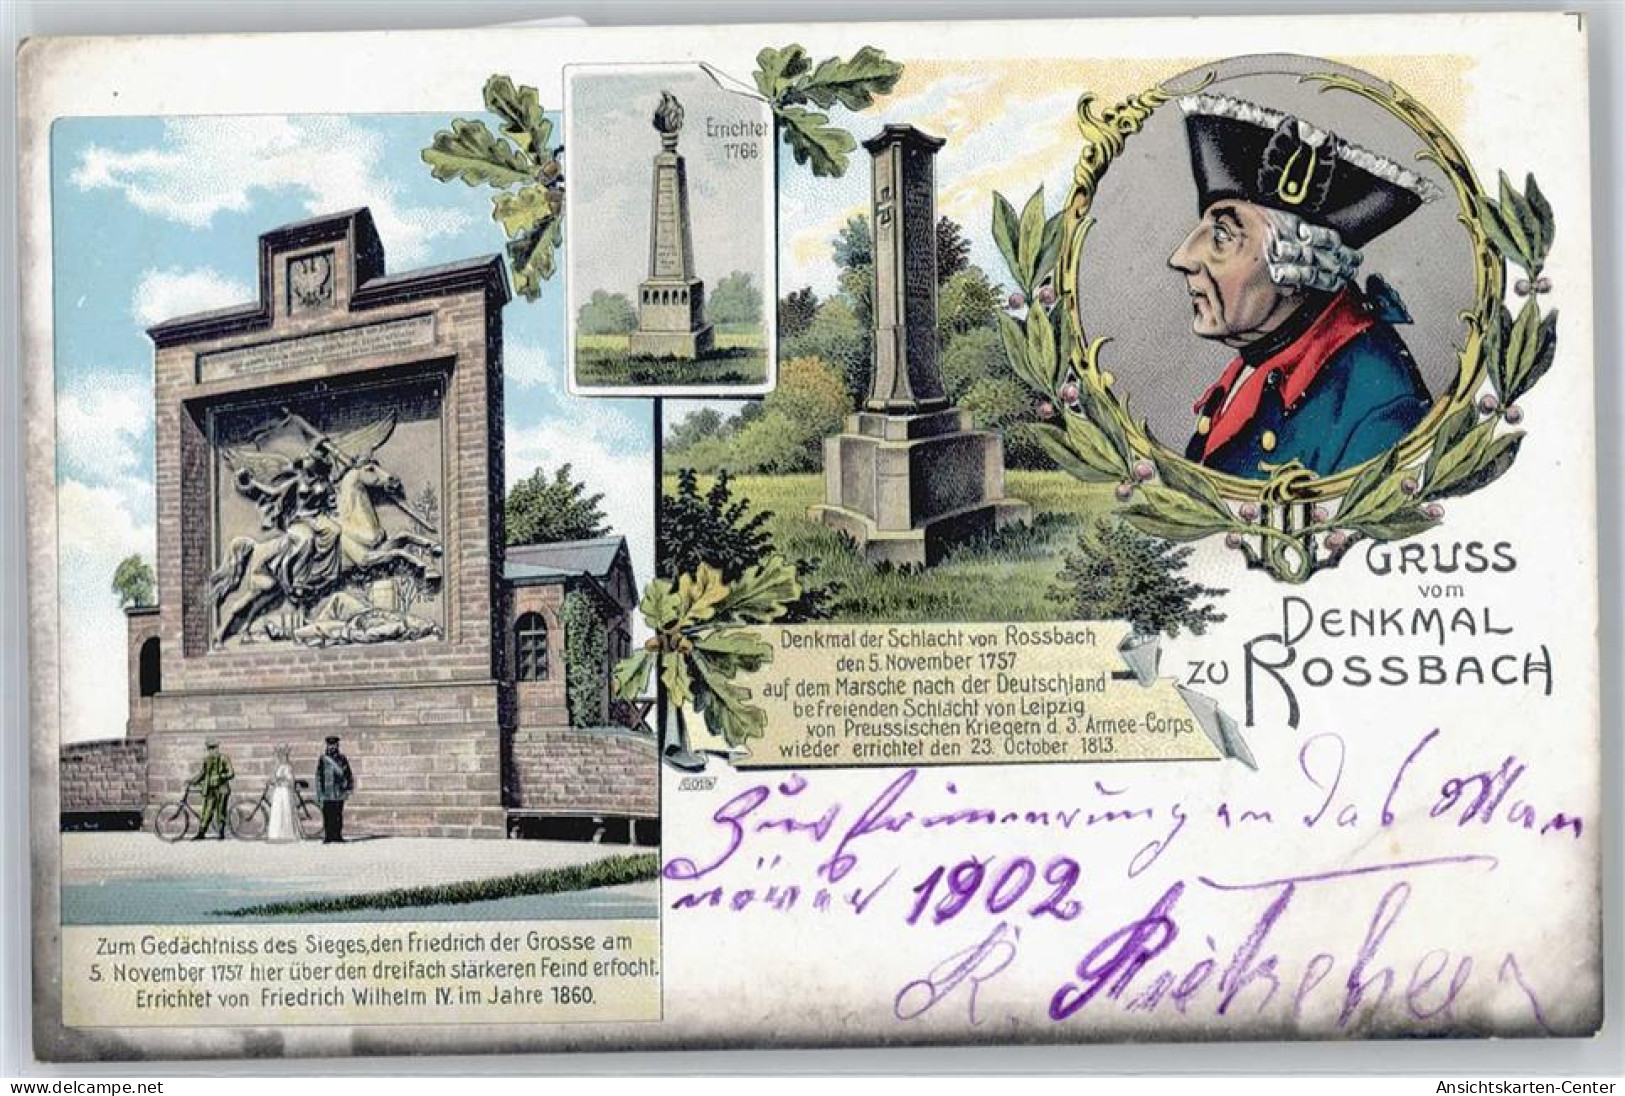 Errichtet
1766
GRUSS
vom
DENKMAL
ZU ROSSBACH
Denkmal der Schlacht von Rossbach
den 5. November 1757
auf dem Marsche nach der Deutschland
befreienden Schlacht von Leipzig
von Preussischen Kriegern d. 3. Armee-Corps
wieder errichtet den 23. October 1813.
Zur Erinnerung an das Man
növer 1902
R.
Zum Gedächtniss des Sieges, den Friedrich der Grosse am
5. November 1757 hier über den dreifach stärkeren Feind erfocht.
Errichtet von Friedrich Wilhelm IV. im Jahre 1860.
www.delcampe.net
Ansichtskarten-Center